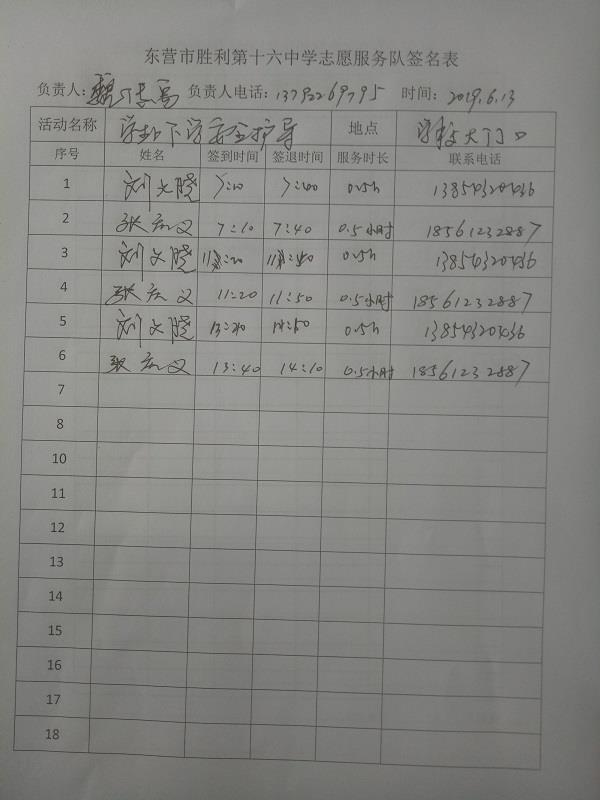 东营市胜利第十六中学志愿服务队签名表
负责人: 负责人电话: 13792269795 时间: 2019.6.13
活动名称 学生上下学安全护导 地点 学校大门口
序号 姓名 签到时间 签退时间 服务时长 联系电话
1 刘文晓 7:10 7:40 0.5h 13854320436
2 张庆义 7:10 7:40 0.5小时 18561232887
3 刘文晓 11:20 11:50 0.5h 13854320436
4 张庆义 11:20 11:50 0.5小时 18561232887
5 刘文晓 13:40 14:10 0.5h 13854320436
6 张庆义 13:40 14:10 0.5小时 18561232887
7
8
10
11
12
13
14
15
16
17
18